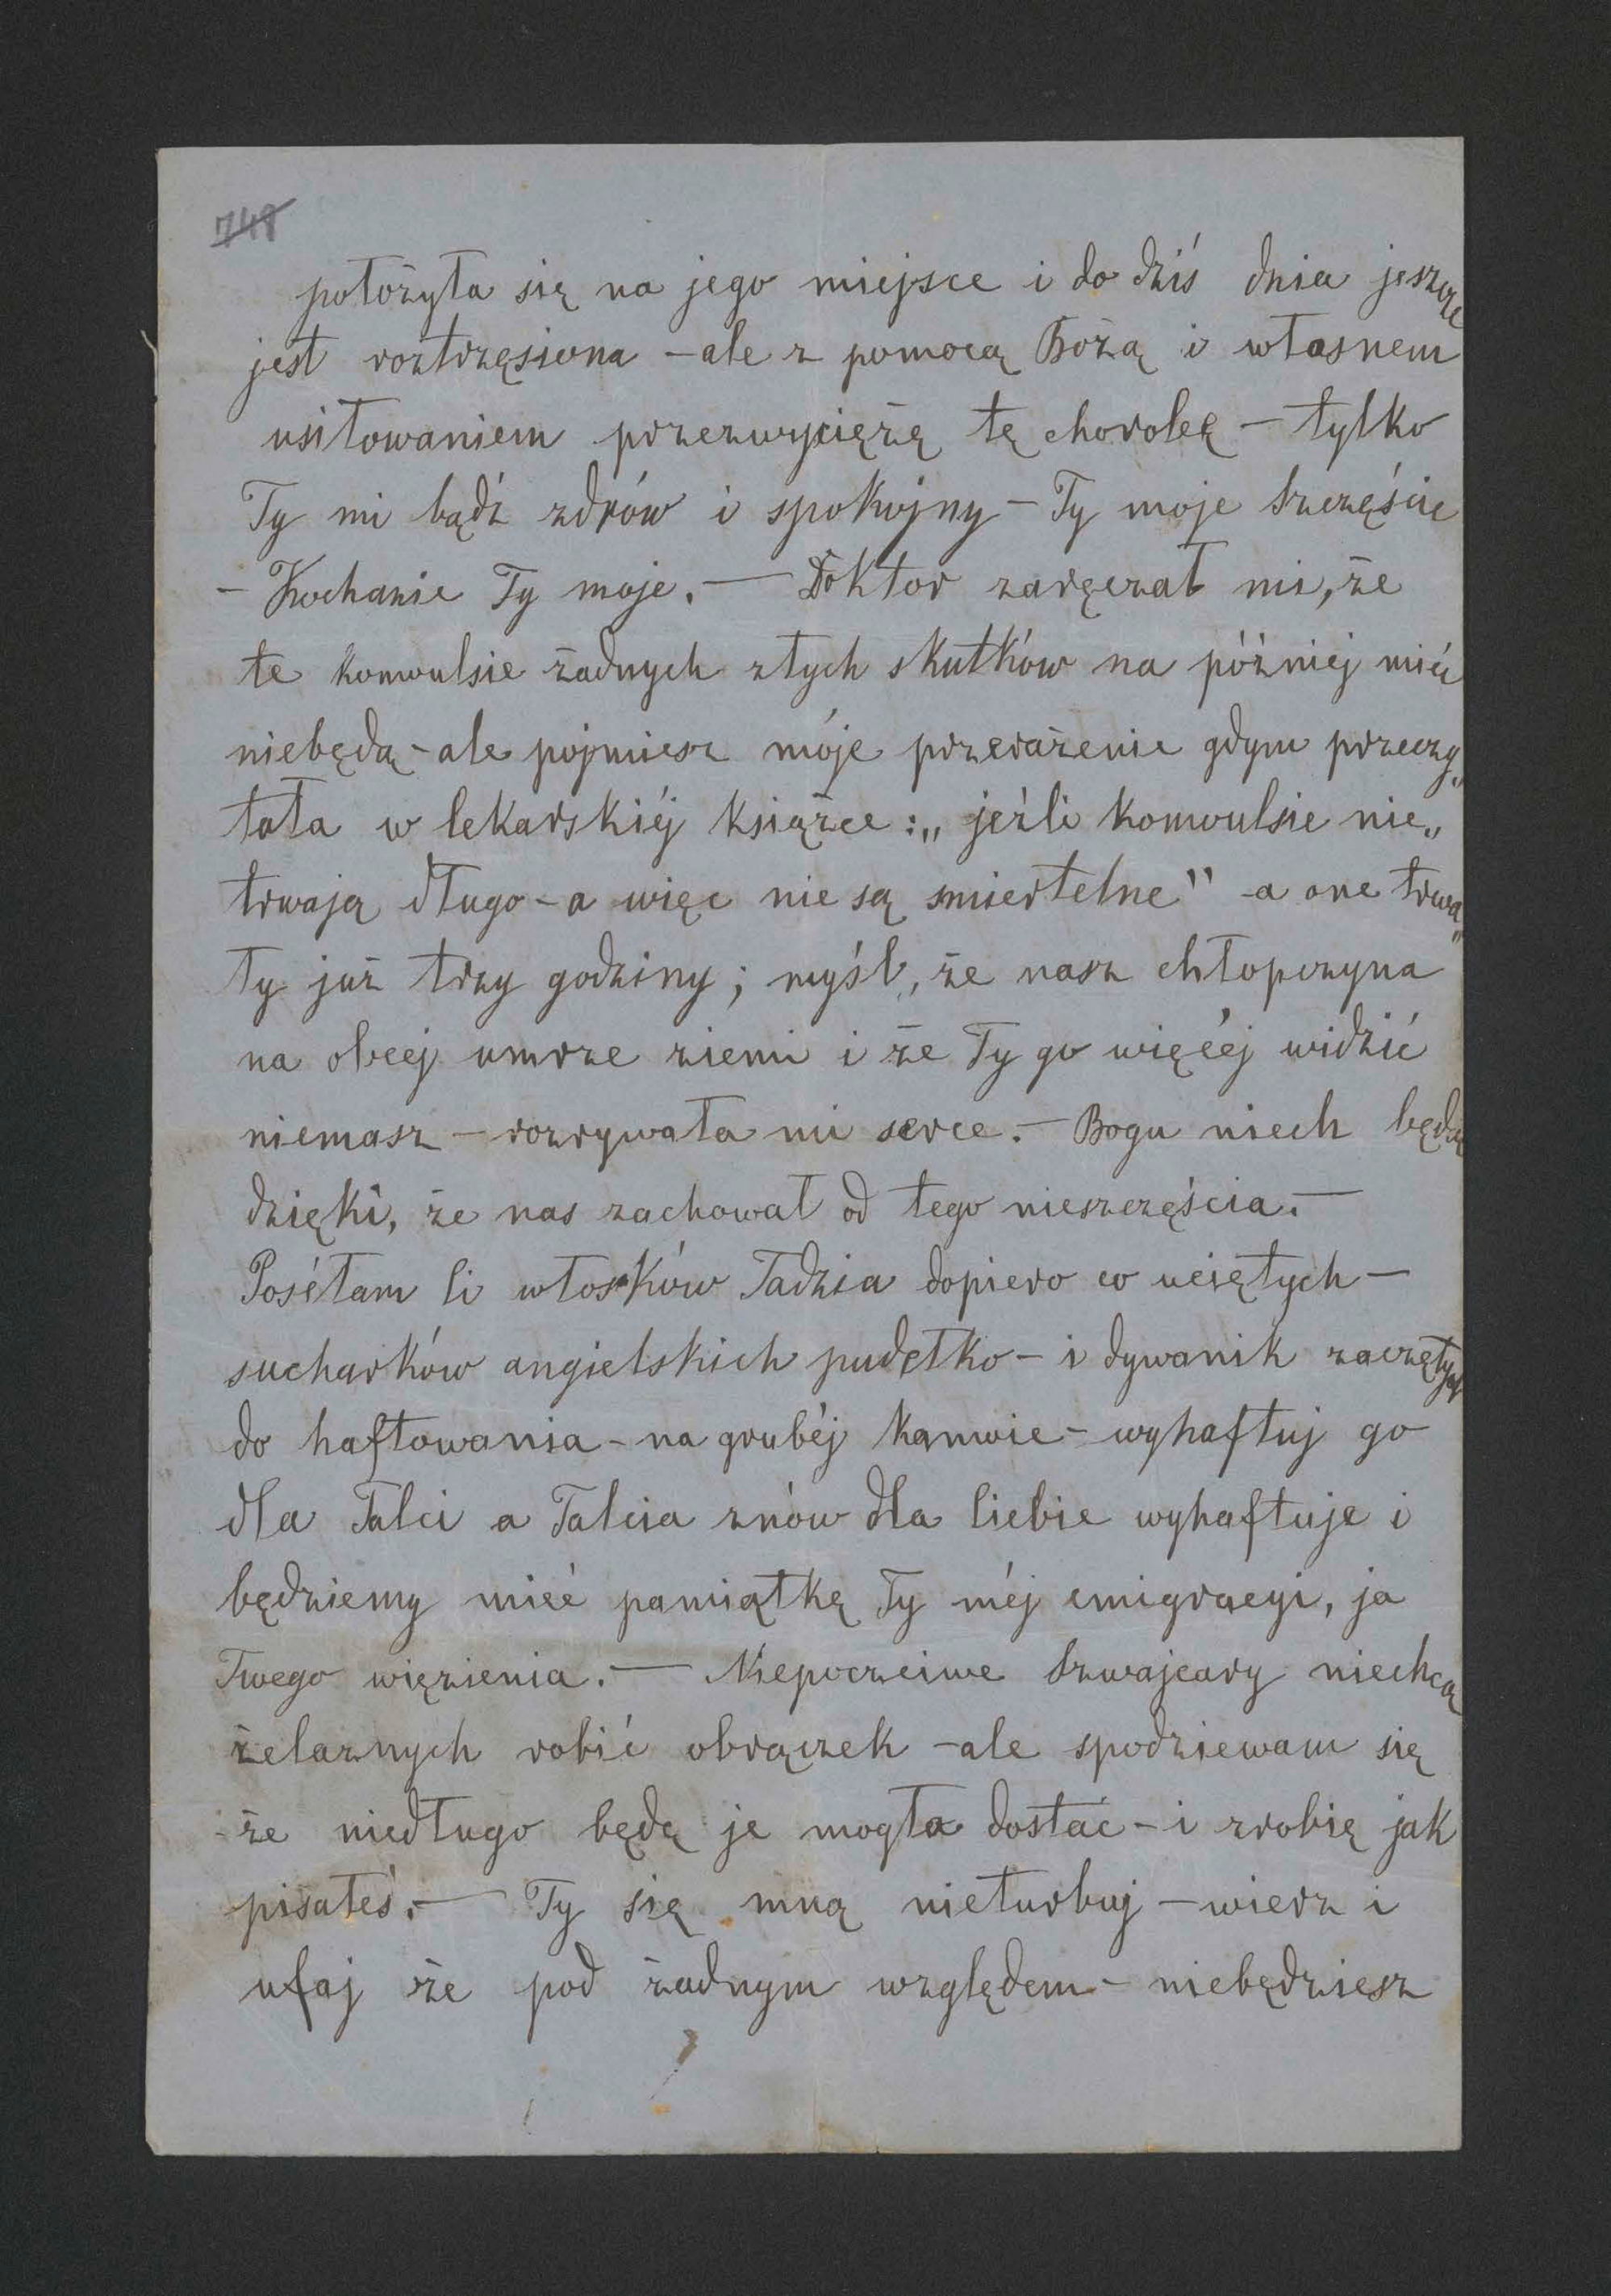 748
położyła się na jego miejsce i do dziś dnia jeszcze
jest roztrzęsiona – ale z pomocą Bożą i własnem
usiłowaniem przezwyciężę tę chorobę – tylko
Ty mi bądź zdrów i spokojny – Ty moje Szczęście
– Kochanie Ty moje. — Doktor zaręczał mi, że
te konwulsie żadnych złych skutków na późniéj mieć
niebędą – ale pojmiesz móje przerażenie gdym przeczy„
tała w lekarskiéj książce: „jeźli konwulsie nie„
trwają długo – a więc nie są smiertelne" – a one trwa„
ły już trzy godziny; myśl, że nasz chłopczyna
na obcej umrze ziemi i że Ty go więcéj widzić
niemasz – rozrywała mi serce. – Bogu niech będą
dzięki, że nas zachował od tego nieszczęścia. —
Posełam Ci włosków Tadzia dopiero co uciętych –
sucharków angielskich pudełko – i dywanik zaczęty
do haftowania – na grubéj kanwie – wyhaftuj go
dla Talci a Talcia znów dla Ciebie wyhaftuje i
będziemy mieć pamiątkę Ty méj emigracyi, ja
Twego więzienia. — Niepoczciwe Szwajcary niechcą
żelaznych robić obrączek – ale spodziewam się
– że niedługo będę je mogła dostać – i zrobię jak
pisałeś. — Ty się mną nieturbuj – wierz i
ufaj że pod żadnym względem – niebędziesz